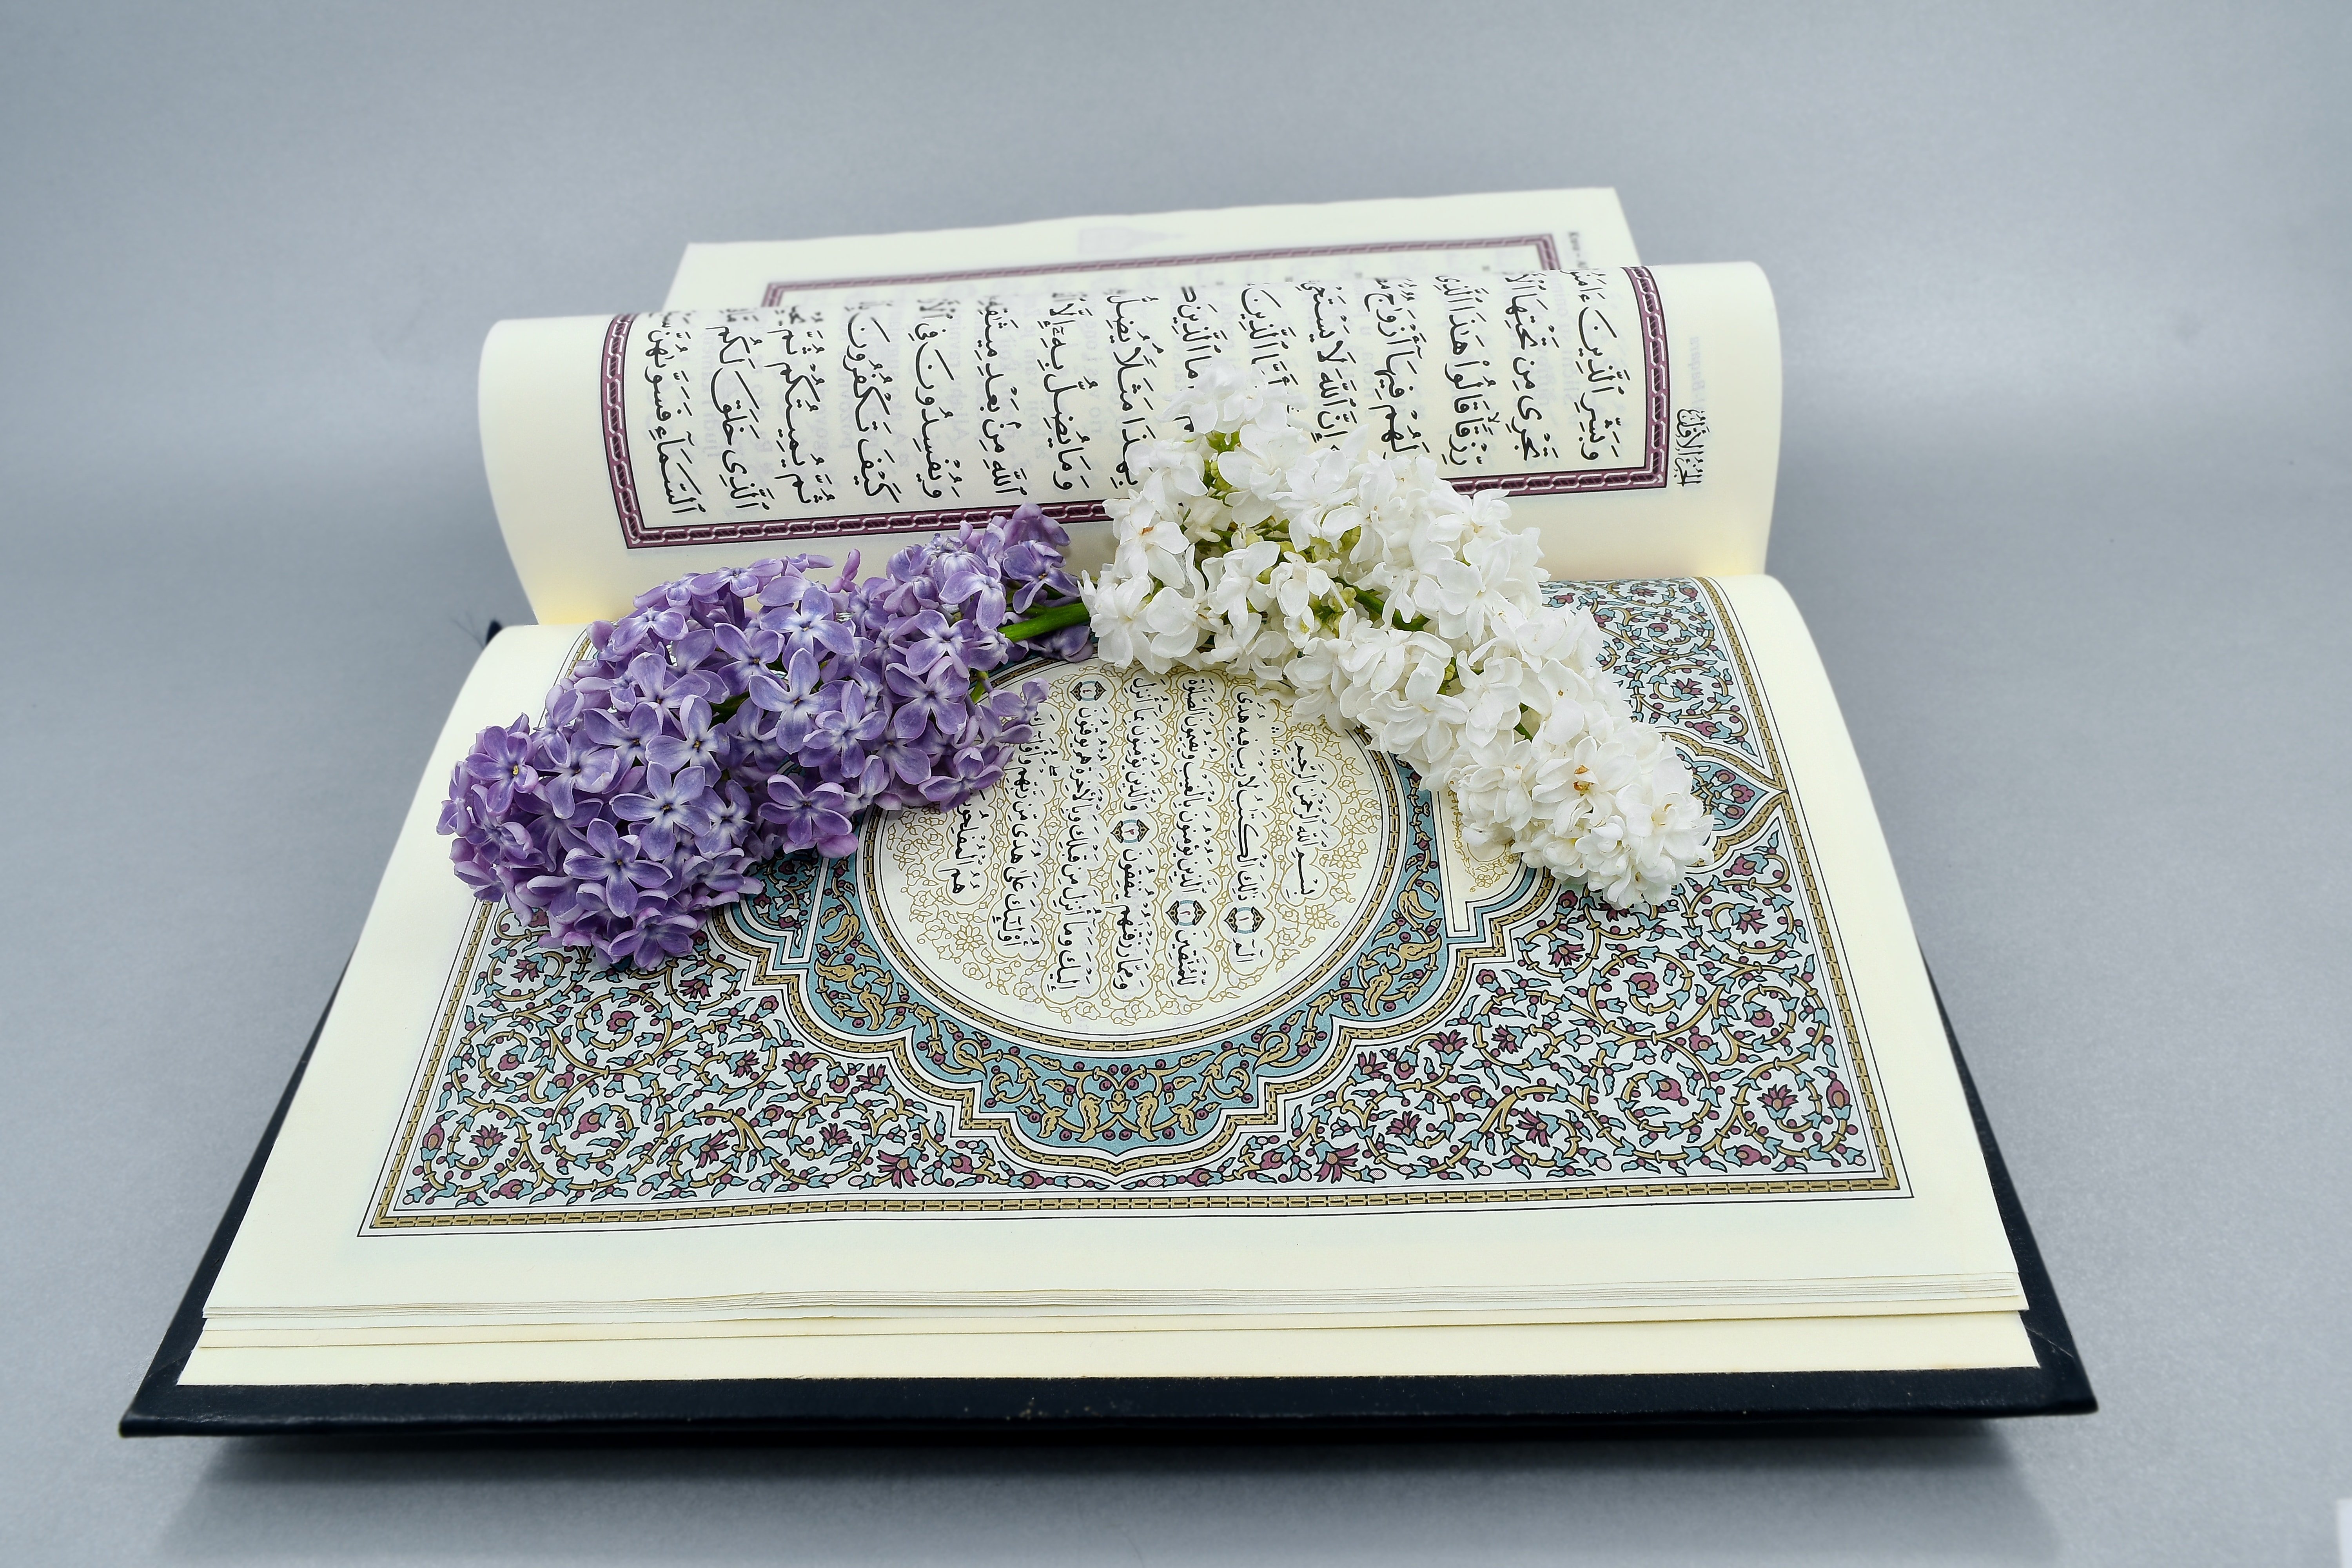 الجزء الأول
وَبَشِّرِ ٱلَّذِينَ ءَامَنُ
تَجْرِى مِن تَحْتِهَا
رِّزْقًا قَالُوا۟ هَـٰذَا ٱلَّذِى
لَهُمْ فِيهَآ أَزْوَٰجٌ
إِنَّ ٱللَّهَ لَا يَسْتَحْىِ
ٱلَّذِينَ
مَا ٱلَّذِينَ
بِهَـٰذَا مَثَلًا يُضِلُّ
وَمَا يُضِلُّ بِهِۦٓ إِلَّا
ٱللَّهِ مِنۢ بَعْدِ مِيثَـٰقِهِ
وَيُفْسِدُونَ فِى
كَيْفَ تَكْفُرُونَ
ثُمَّ يُمِيتُكُمْ ثُمَّ
ٱلَّذِى خَلَقَ لَكُم
ٱلسَّمَآءِ فَسَوَّىٰهُنَّ
بِسْمِ ٱللَّهِ ٱلرَّحْمَـٰنِ ٱلرَّحِيمِ
الٓمٓ ١ ذَٰلِكَ ٱلْكِتَـٰبُ لَا رَيْبَ فِيهِ هُدًى
لِّلْمُتَّقِينَ ٢ ٱلَّذِينَ يُؤْمِنُونَ بِٱلْغَيْبِ وَيُقِيمُونَ ٱلصَّلَوٰةَ
وَمِمَّا رَزَقْنَـٰهُمْ يُنفِقُونَ ٣ وَٱلَّذِينَ يُؤْمِنُونَ بِمَآ أُنزِلَ
إِلَيْكَ وَمَآ أُنزِلَ مِن قَبْلِكَ وَبِٱلْـَٔاخِرَةِ هُمْ يُوقِنُونَ ٤
أُو۟لَـٰٓئِكَ عَلَىٰ هُدًى مِّن رَّبِّهِمْ
هُمُ ٱلْمُفْلِحُونَ